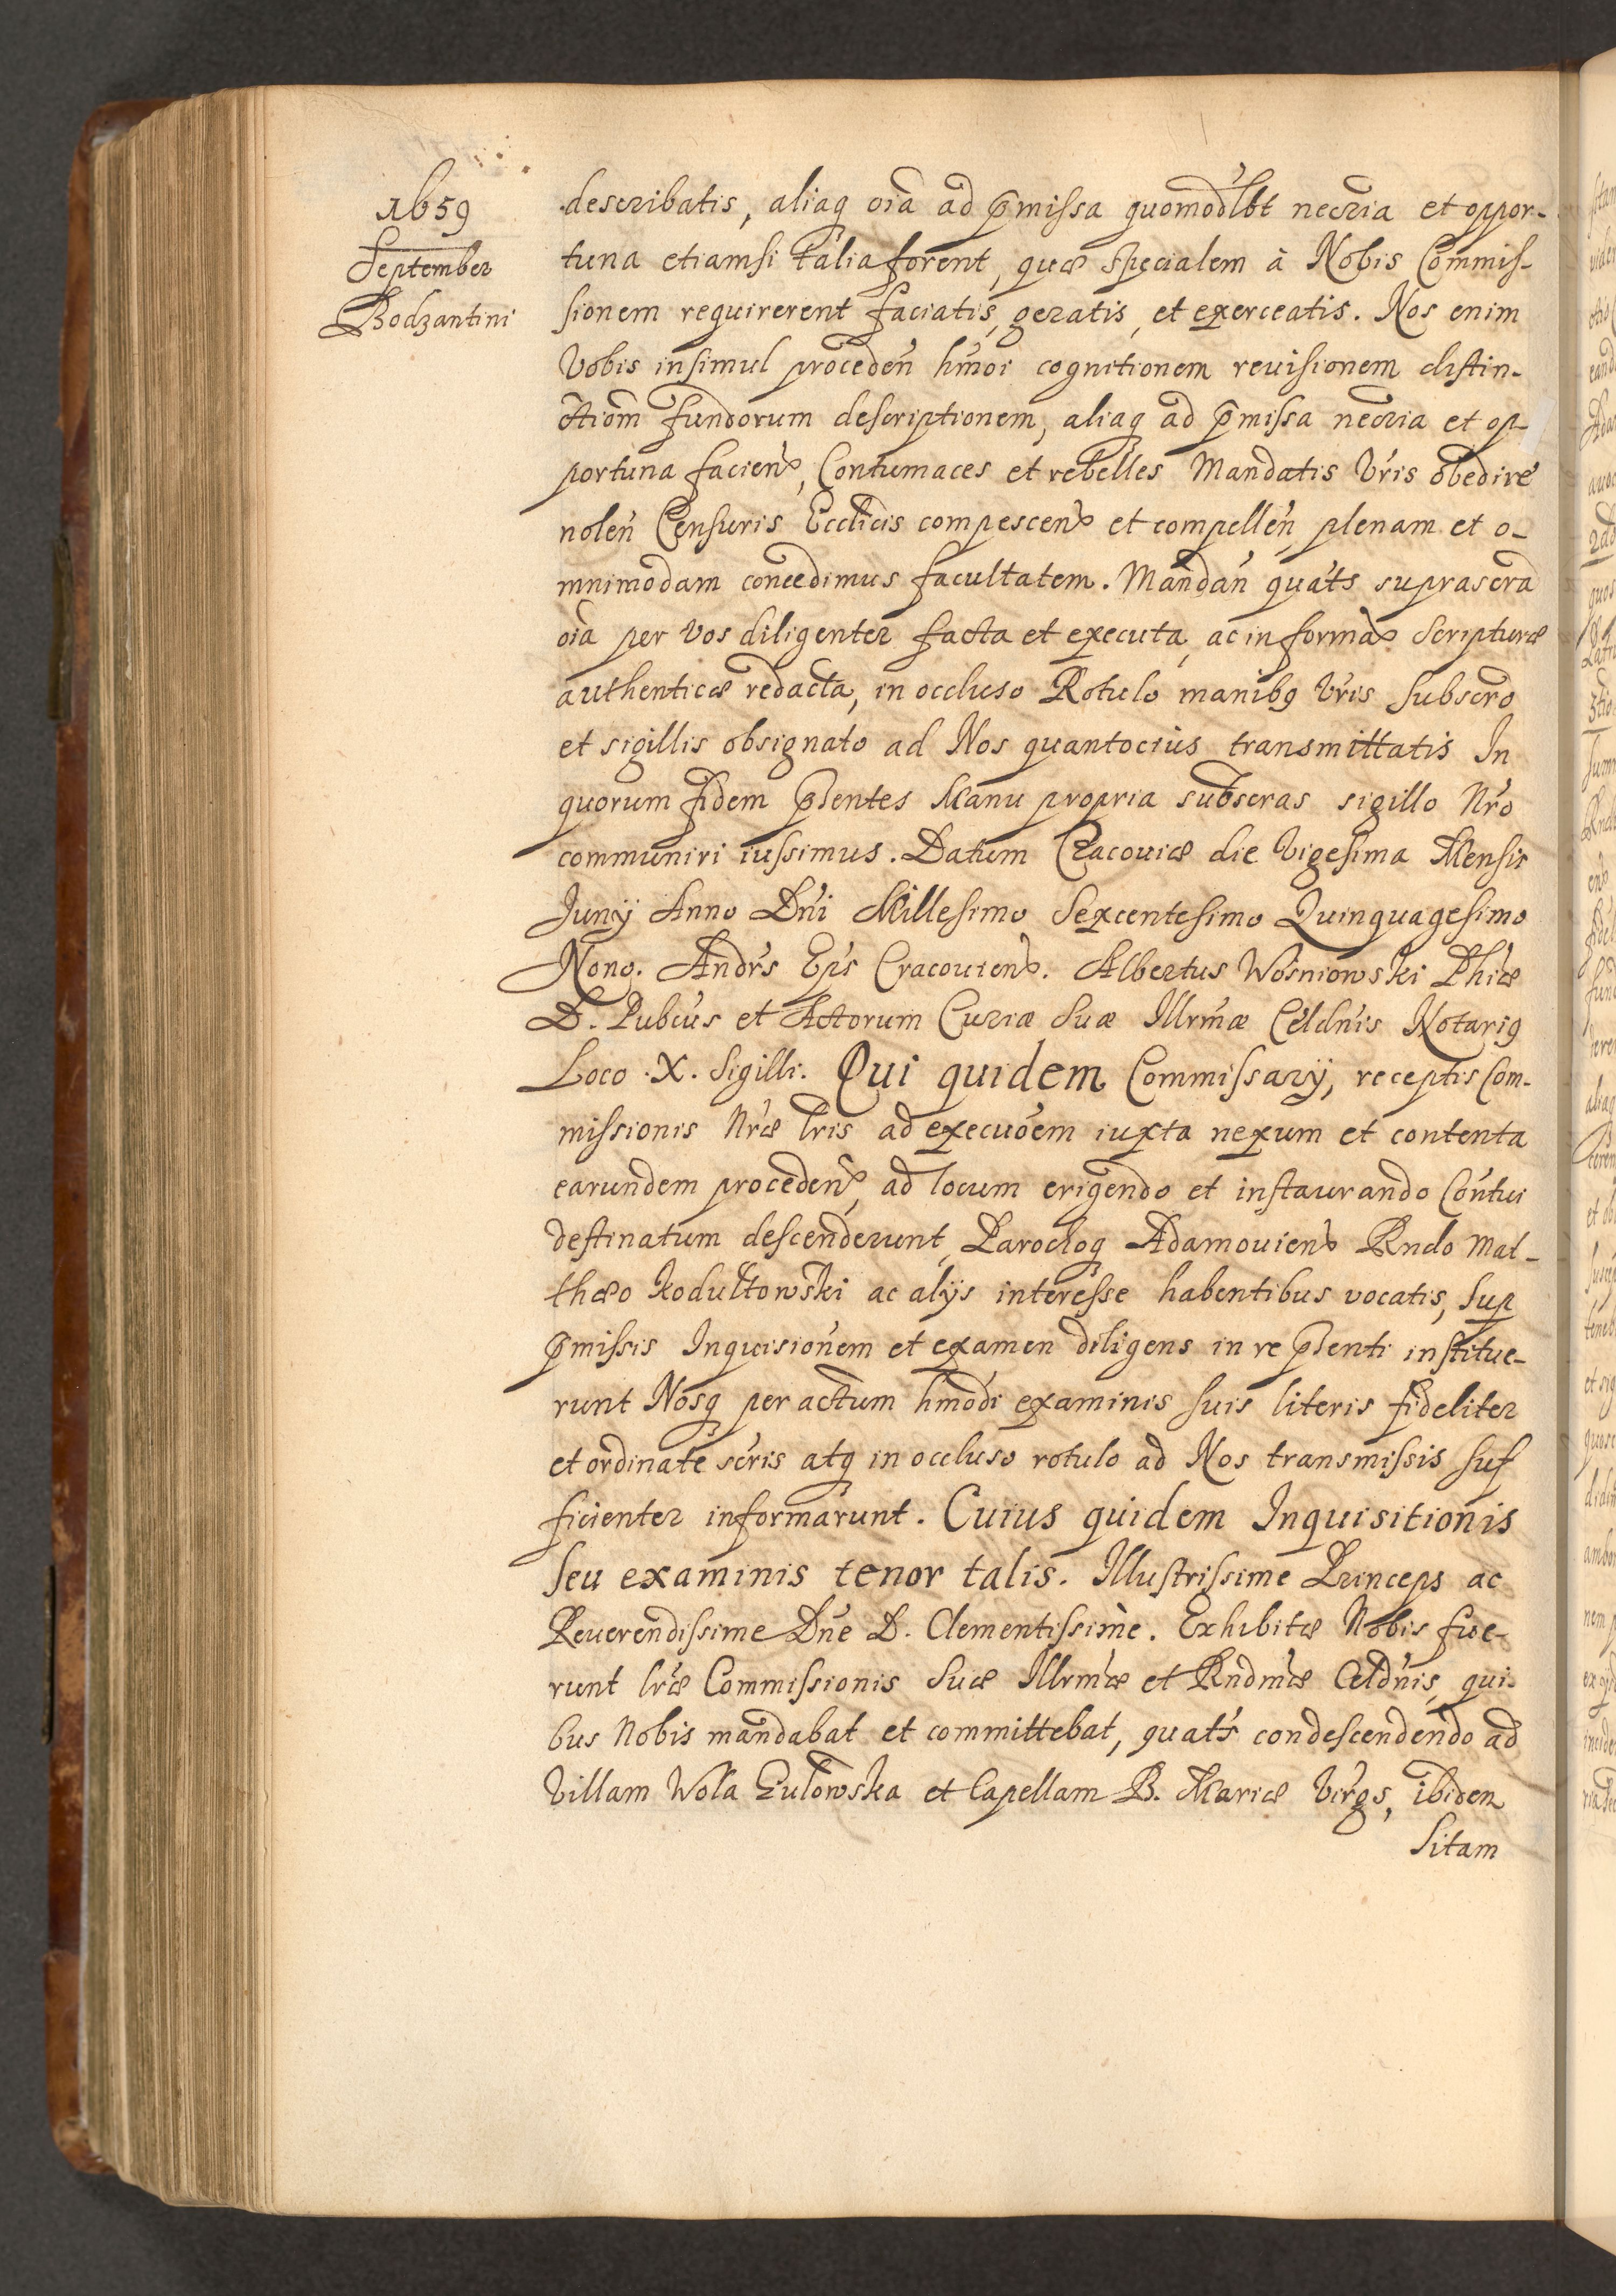 1659
September
Bodzantini
describatis, aliaq oia ad pmissa quomodlbt necria et oppor-
tuna etiamsi talia forent, quæ specialem à Nobis Commis-
sionem requirerent faciatis, geratis, et exerceatis. Nos enim
Vobis insimul proceden hmoi cognitionem reuisionem distin-
ctiom fundorum descriptionem, aliaq ad pmissa necria et op-
portuna faciens, Contumaces et rebelles Mandatis Vris obedire
nolen Censuris Ecclicis compescens et compellen, plenam et o-
mnimodam concedimus facultatem. Mandan quats suprascra
oia per Vos diligenter facta et executa, ac in formas Scripturæ
authenticæ redacta, in occluso Rotulo manibq Vris subscro
et sigillis obsignato ad Nos quantocius transmittatis In
quorum fidem psentes Manu propria subscras sigillo Nro
communiri iussimus. Datum Cracouiæ die Vigesima Mensis
Junÿ Anno Dni Millesimo Sexcentesimo Quinquagesimo
Nono. Andrs Eps Cracouiens. Albertus Wośniowski Phiæ
D. Pubcus et Actorum Curiæ Suæ Illrmæ Celdnis Notariq
Loco .X. Sigilli. Qui quidem Commissarÿ, receptis Com-
missionis Nræ lris ad execuoem iuxta nexum et contenta
earundem procedens, ad locum erigendo et instaurando Contui
destinatum descenderunt, Parochoq Adamouiens Rndo Mat-
thæo Kodultowski ac alÿs interesse habentibus vocatis, sup
pmissis Inquisionem et examen diligens in re psenti institue-
runt Nosq per actum hmodi examinis suis literis fideliter
et ordinate scris atq in occluso rotulo ad Nos transmissis suf
ficienter informarunt. Cuius quidem Inquisitionis
seu examinis tenor talis. Illustrissime Princeps ac
Reuerendissime Dne D. Clementissime. Exhibitæ Nobis fue-
runt lræ Commissionis Suæ Illrmæ et Rndmæ Celdnis, qui-
bus Nobis mandabat et committebat, quats condescendendo ad
Villam Wola Gulowska et Capellam B. Mariæ Virgs, ibidem
Sitam